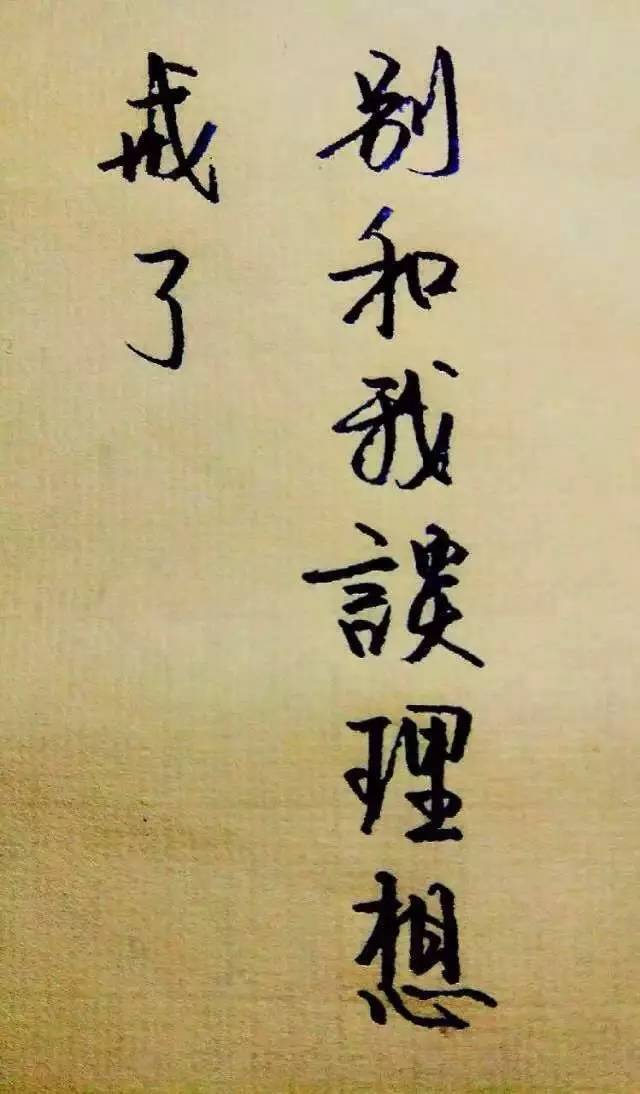 别和我談理想
戒了